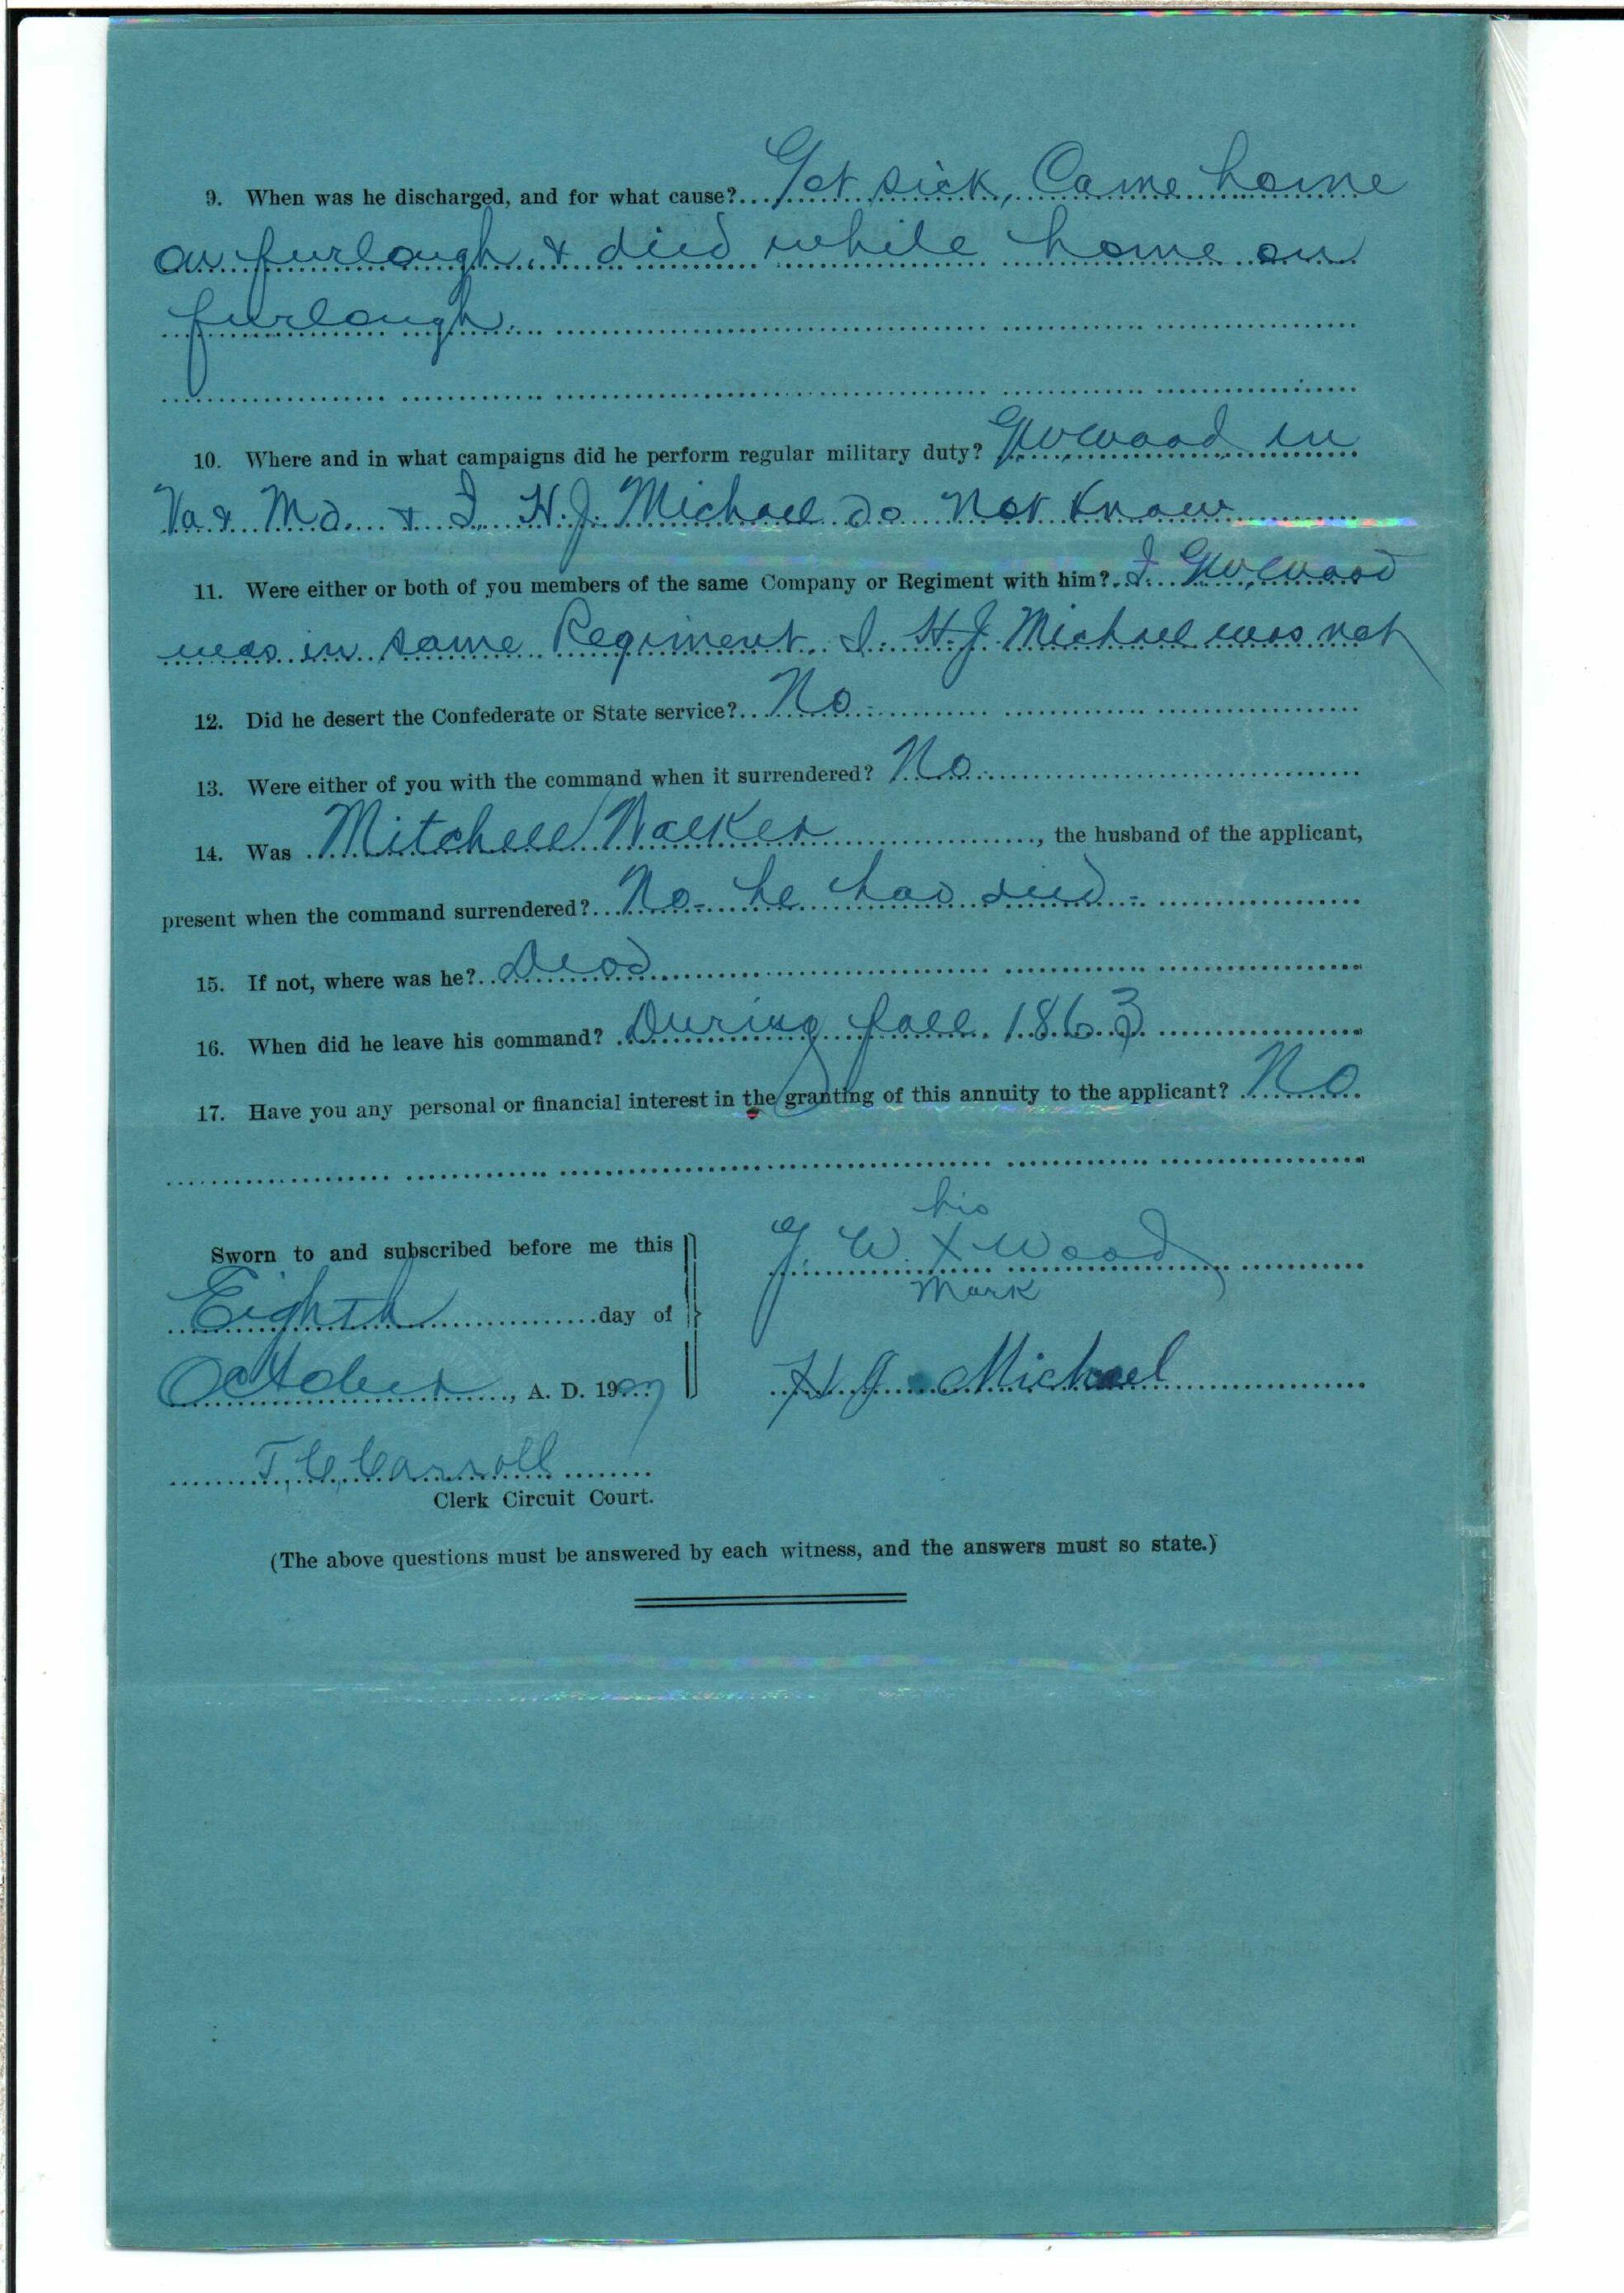 9. When was he discharged, and for what cause? Got sick, Came home
on furlough, & died while home on
furlough.
10. Where and in what campaigns did he perform regular military duty? G W Wood in
Va & Md. & I H. J. Michael do not know
11. Were either or both of you members of the same Company or Regiment with him? I G W Wood
was in same Regiment. I. H. J. Michael was not
12. Did he desert the Confederate or State service? No -
13. Were either of you with the command when it surrendered? No.
14. Was Mitchell Walker, the husband of the applicant,
present when the command surrendered? No - he had died -
15. If not, where was he? Dead
16. When did he leave his command? During fall 1863
17. Have you any personal or financial interest in the granting of this annuity to the applicant? No
his
Sworn to and subscribed before me this G. W. X Wood
mark
Eighth day of
October, A. D. 1907 H J Michael
T. C. Carroll
Clerk Circuit Court.
(The above questions must be answered by each witness, and the answers must so state.)